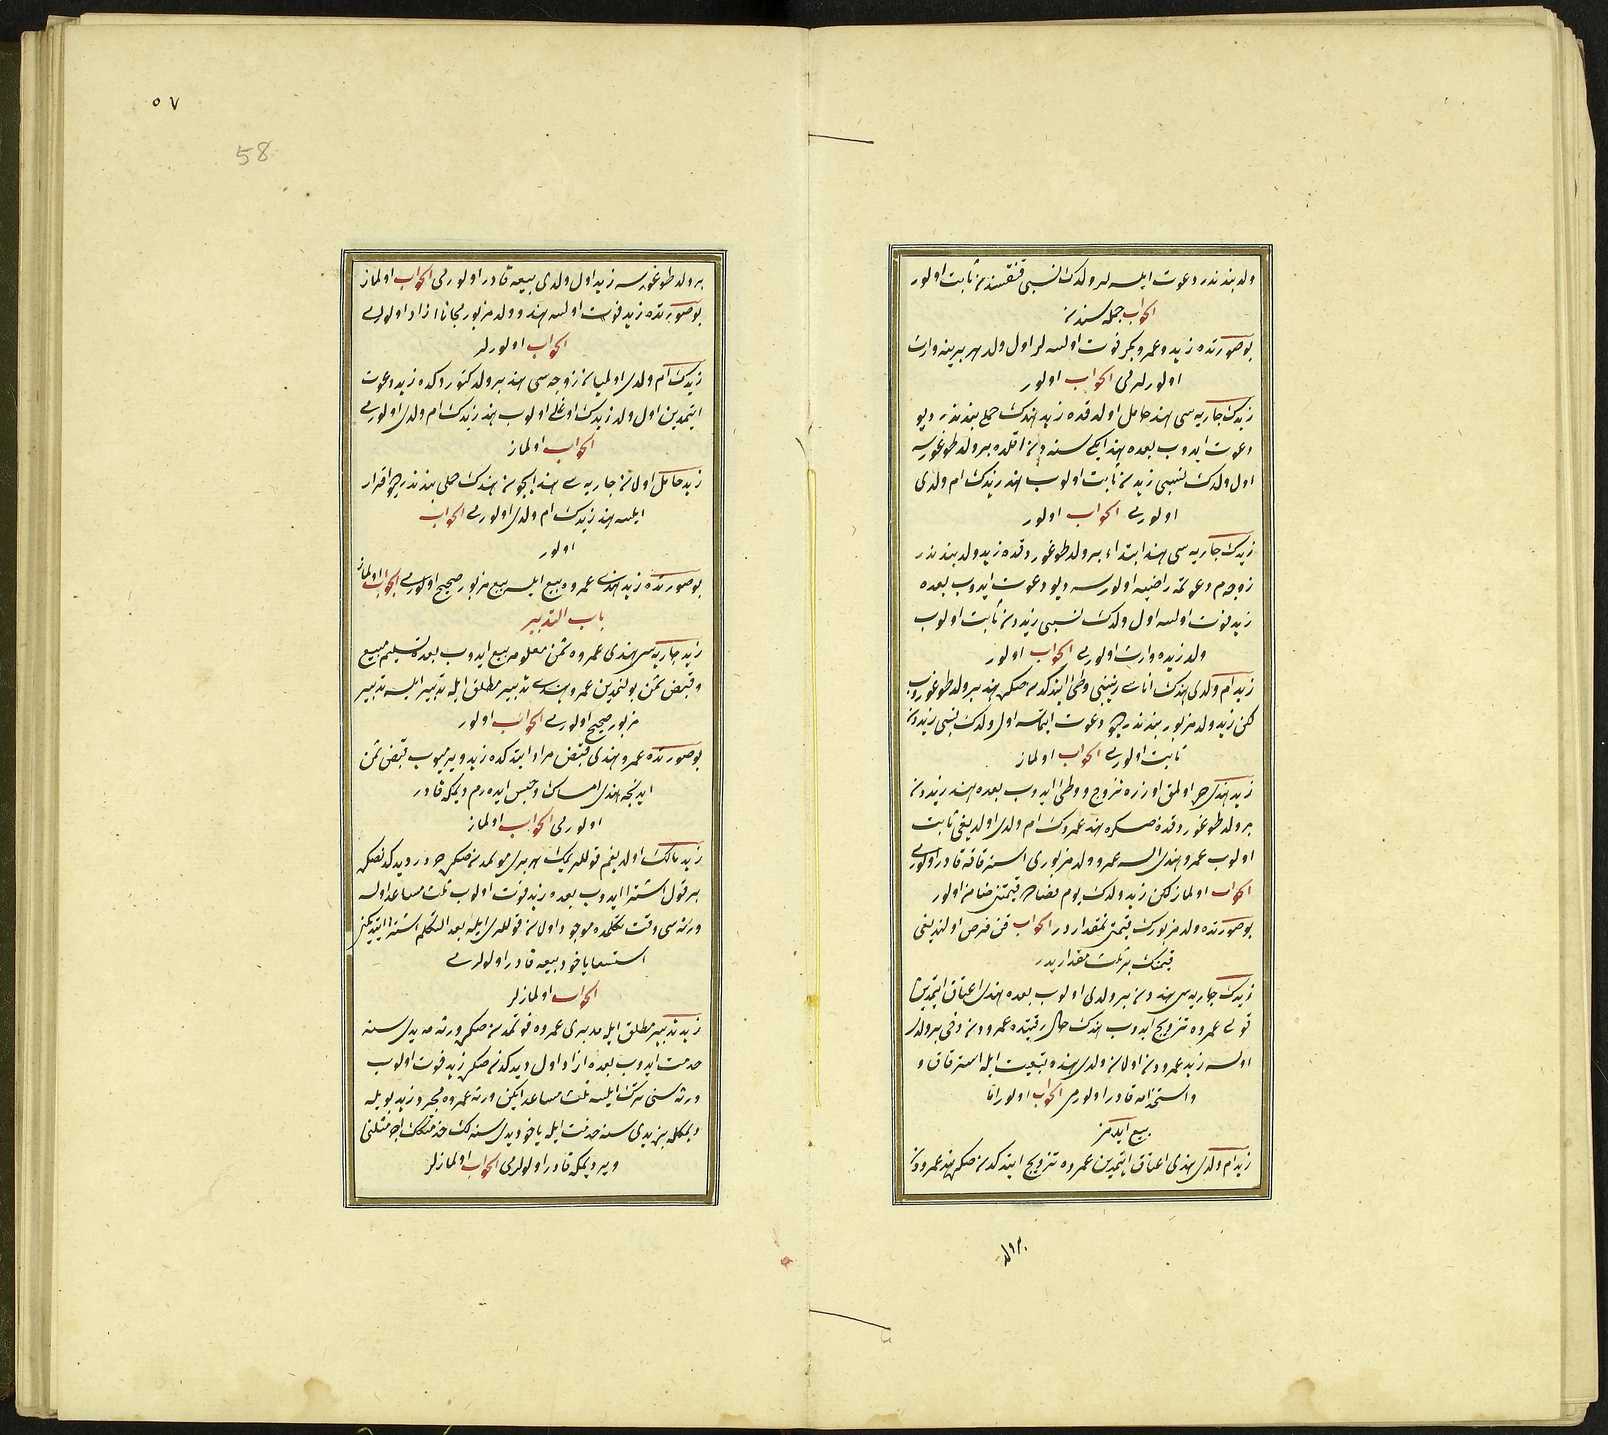 ولد بندندر دعوت ایلسه لر ولدك نسبی قنقیسندن ثابت اولور
الجواب جمله سندن
بو صورتده زید و عمرو و بكر فوت اولسه لر اول ولد هر برینه وارث
اولورلر می الجواب اولور
زیدك جاریه سی هند حامل اولدقده زید هندك حملی بندندر دیو
دعوت ایدوب بعده هند ایكی سنه دن اقلده بر ولد طوغورسه
اول ولدك نسبی زیددن ثابت اولوب هند زیدك ام ولدی
اولورمی الجواب اولور
زیدك جاریه سی هند ابتداء بر ولد طوغوردقده زید ولد بندندر
زوجه م دعوتمه راضیه اولورسه دیو دعوت ایدوب بعده
زید فوت اولسه اول ولدك نسبی زیددن ثابت اولوب
ولد زیده وارث اولورمی الجواب اولور
زید ام ولدی هندك اناسی زینبی وطئ ایتدكدنصكره هند بر ولد طوغوروب
لكن زید ولد مزبور بندندر دیو دعوت ایتمسه اول ولدك نسبی زیددن
ثابت اولورمی الجواب اولماز
زید هندی حره اولمق اوزره تزوج و وطئ ایدوب بعده هند زیددن
بر ولد طوغوردقدنصكره هند عمروك ام ولدی اولدیغی ثابت
اولوب عمرو هندی السه عمرو ولد مزبوری استرقاقه قادر اولورمی
الجواب اولماز لكن زید ولدك یوم خصامده قیمتنی ضامن اولور
بو صورتده ولد مزبورك قیمتی نمقداردر الجواب قن فرض اولندیغی
قیمتك بر ثلث مقداریدر
زیدك جاریه سی هنددن بر ولدی اولوب بعده هندی اعتاق ایتمدین
قولی عمروه تزویج ایدوب هندك حال رقیتنده عمرودن دخی بر ولدی
اولسه زید عمرودن اولان ولدی هنده تبعیت ایله استرقاق و
و استخدامه قادر اولورمی الجواب اولور اما
بیع ایده مز
زید ام ولدی هندی اعتاق ایتمدین عمروه تزویج ایتدكدنصكره هند عمرودن
بر ولد
٥٧
58
بر ولد طوغورسه زید اول ولدی بیعه قادر اولورمی الجواب اولماز
بو صورتده زید فوت اولسه هند و ولد مزبور مجانا ازاد اولورلرمی
الجواب اولورلر
زیدك ام ولدی اولمیان زوجه سی هند بر ولد كتوردكده زید دعوت
ایتمدین اول ولد زیدك اوغلی اولوب هند زیدك ام ولدی اولورمی
الجواب اولماز
زید حامل اولان جاریه سی هند ایچون هندك حملی بندندر دیو اقرار
ایلسه هند زیدك ام ولدی اولورمی الجواب
اولور
بو صورتده زید هندی عمروه بیع ایلسه بیع مزبور صحیح اولورمی الجواب اولماز
باب التدبیر
زید جاریه سی هندی عمروه ثمن معلومه بیع ایدوب بعده تسلیم مبیع
و قبض ثمن بولنمدین عمرو هندی تدبیر مطلق ایله تدبیر ایلسه تدبیر
مزبور صحیح اولورمی الجواب اولور
بو صورتده عمرو هندی قبض مراد ایتدكده زید ویرمیوب قبض ثمن
ایدنجه هندی امساك و حبس ایده رم دیمكه قادر
اولورمی الجواب اولماز
زید مالك اولدیغم قوللریمك هر بری موتمدنصكره حردر دیدكدنصكره
بر قول اشترا ایدوب بعده زید فوت اولوب ثلث مساعد اولسه
ورثه سی وقت تكلمده موجود اولان قوللری ایله بعد التكلم اشترا ایتدیكنی
استسعا یاخود بیعه قادر اولورلرمی
الجواب اولمازلر
زید تدبیر مطلق ایله مدبری عمروه فوتمدنصكره ورثه مه یدی سنه
خدمت ایدوب بعده ازاد اول دیدكدنصكره زید فوت اولوب
ورثه سنی ترك ایلسه ثلث مساعد ایكن ورثه عمروه مجرد زید بویله
دیمكله بزه یدی سنه خدمت ایله یاخود یدی سنه لك خدمتكك اجر مثلنی
ویر دیمكه قادر اولورلرمی الجواب اولمازلر